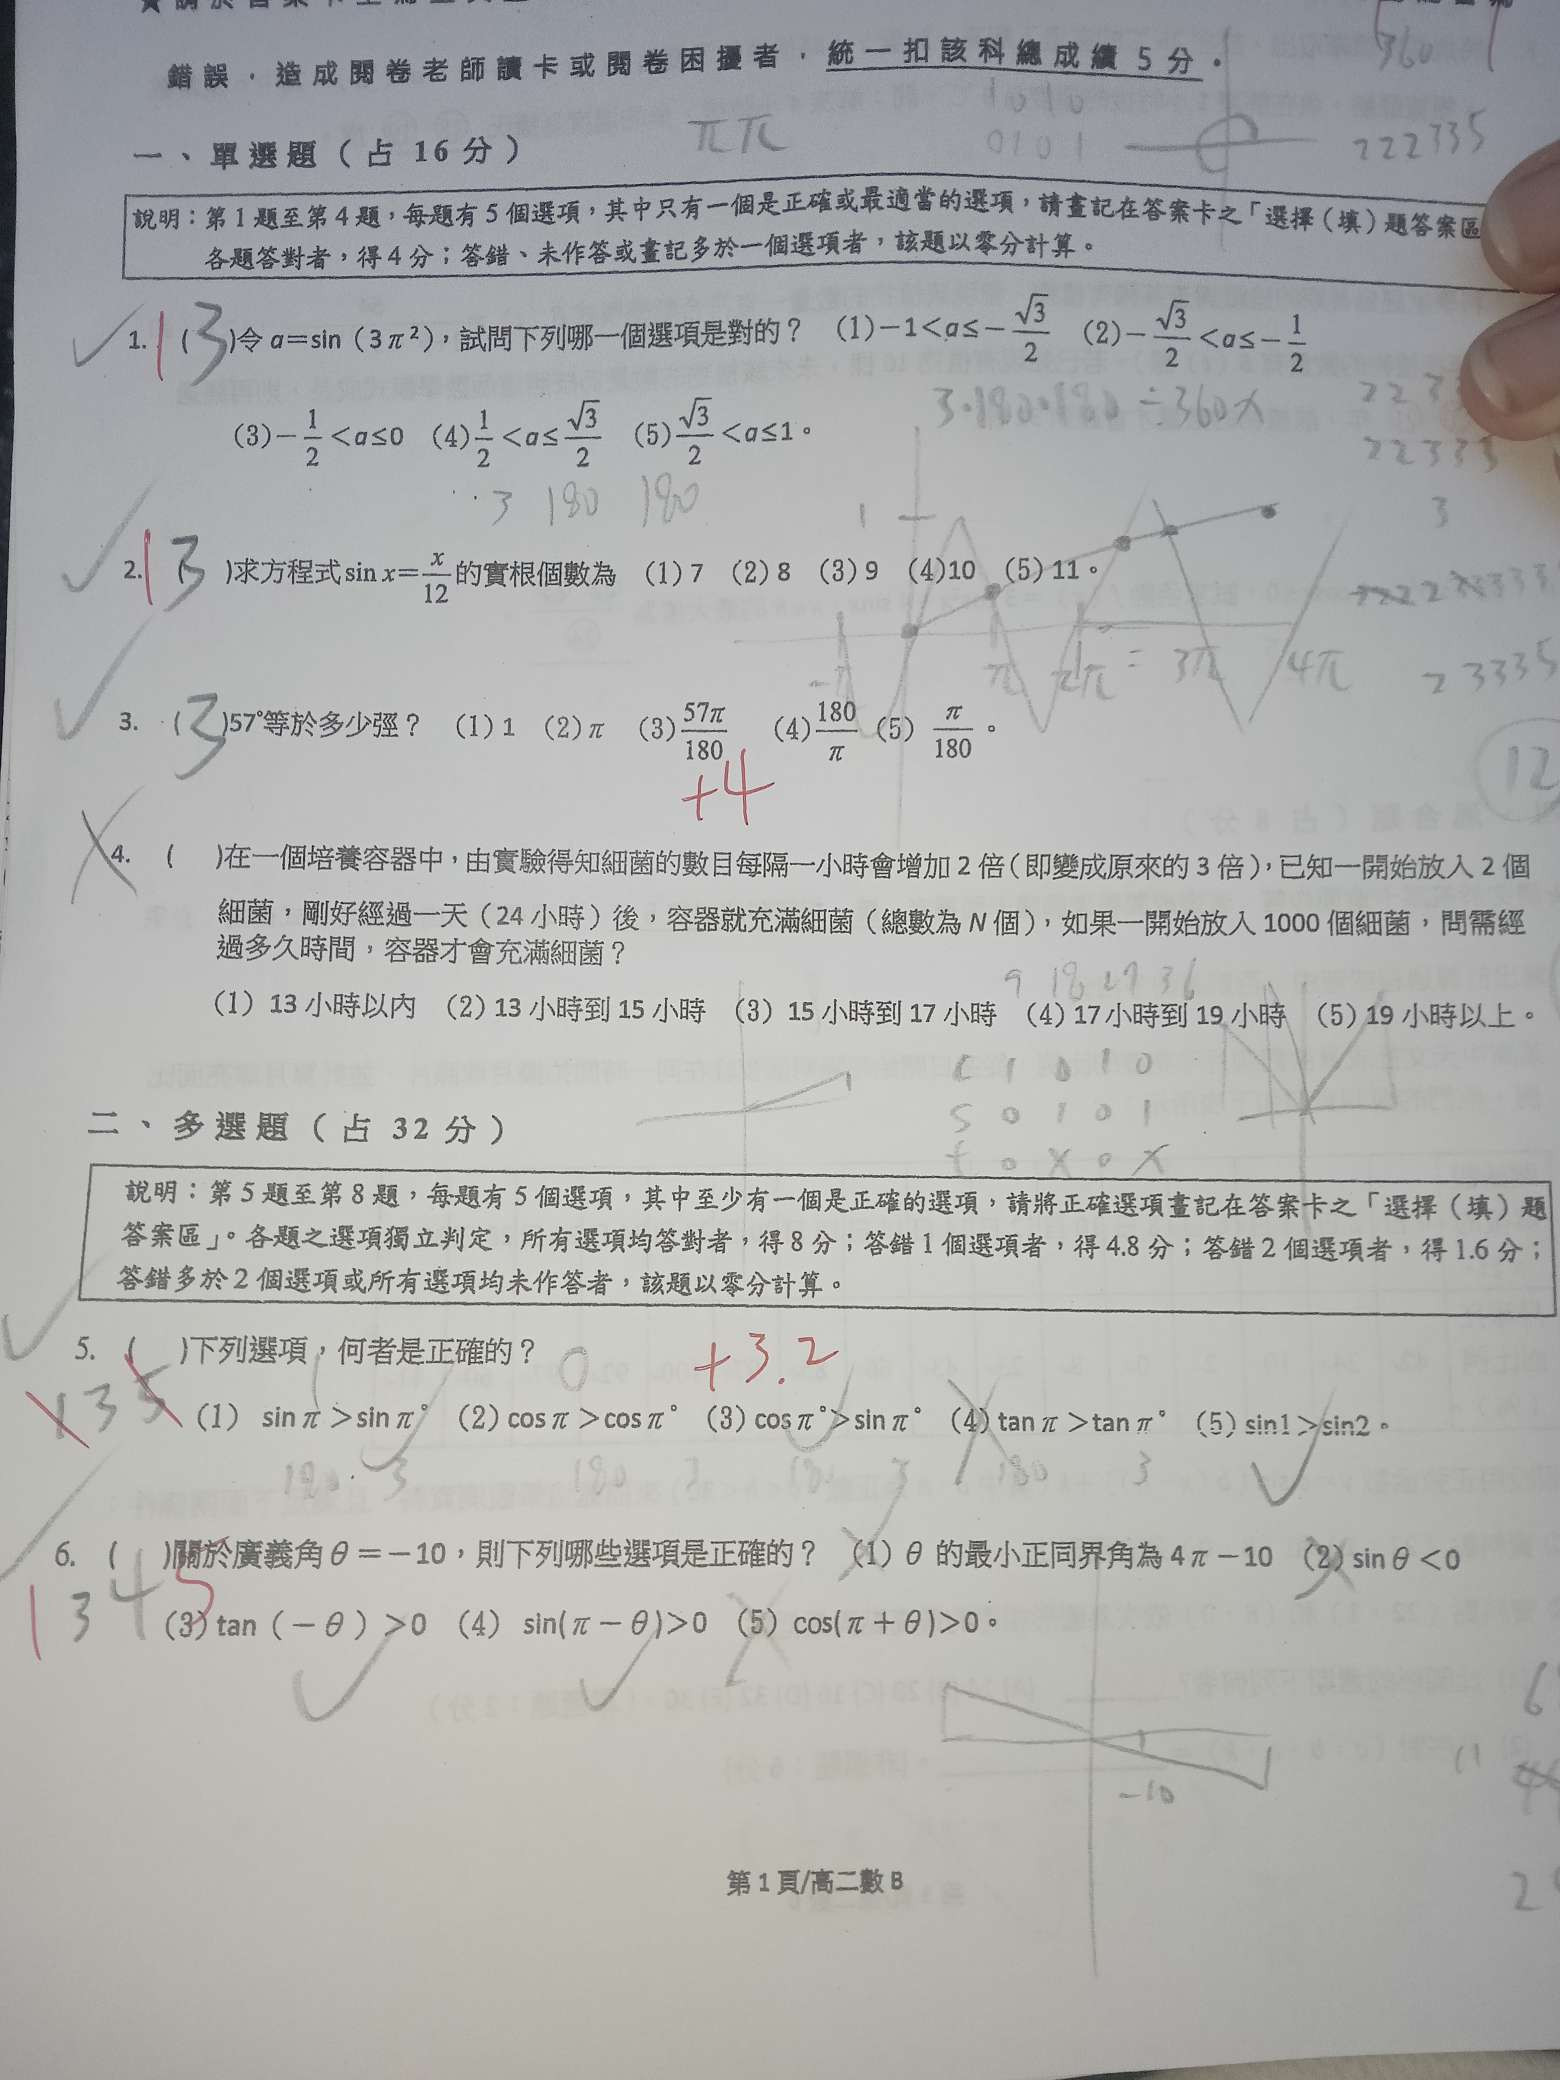 錯誤，造成閱卷老師讀卡或閱卷困擾者，統一扣該科總成績 5 分。
360
ππ
1 0 1 0
0 1 0 1
222335
一、單選題（占 16 分）
說明：第 1 題至第 4 題，每題有 5 個選項，其中只有一個是正確或最適當的選項，請畫記在答案卡之「選擇（填）題答案區
各題答對者，得 4 分；答錯、未作答或畫記多於一個選項者，該題以零分計算。
1. 1 ( 3 )令 a＝sin（3π²），試問下列哪一個選項是對的？ (1)－1＜a≤－√3/2 (2)－√3/2＜a≤－1/2
3·180·180÷360×
(3)－1/2＜a≤0 (4)1/2＜a≤√3/2 (5)√3/2＜a≤1。
22335
3 180 180
1
3
2. 1 3 )求方程式 sin x＝x/12 的實根個數為 (1) 7 (2) 8 (3) 9 (4)10 (5) 11。
－π π 2π = 3π 4π
23335
3. ( 3 )57°等於多少弳？ (1) 1 (2) π (3) 57π/180 (4) 180/π (5) π/180。
+4
12
4. ( )在一個培養容器中，由實驗得知細菌的數目每隔一小時會增加 2 倍（即變成原來的 3 倍），已知一開始放入 2 個
細菌，剛好經過一天（24 小時）後，容器就充滿細菌（總數為 N 個），如果一開始放入 1000 個細菌，問需經
過多久時間，容器才會充滿細菌？
9 18 27 36
(1) 13 小時以內 (2) 13 小時到 15 小時 (3) 15 小時到 17 小時 (4) 17 小時到 19 小時 (5) 19 小時以上。
c 1 0 1 0
s 0 1 0 1
t 0 x 0 x
二、多選題（占 32 分）
說明：第 5 題至第 8 題，每題有 5 個選項，其中至少有一個是正確的選項，請將正確選項畫記在答案卡之「選擇（填）題
答案區」。各題之選項獨立判定，所有選項均答對者，得 8 分；答錯 1 個選項者，得 4.8 分；答錯 2 個選項者，得 1.6 分；
答錯多於 2 個選項或所有選項均未作答者，該題以零分計算。
5. ( )下列選項，何者是正確的？
+3.2
0
135
(1) sin π＞sin π° (2) cos π＞cos π° (3) cos π°＞sin π° (4) tan π＞tan π° (5) sin1＞sin2。
180 3 180 3 180 3 180 3
6. ( )關於廣義角 θ＝－10，則下列哪些選項是正確的？ (1) θ 的最小正同界角為 4π－10 (2) sin θ＜0
1 3 4 5
(3) tan（－θ）＞0 (4) sin(π－θ)＞0 (5) cos(π＋θ)＞0。
－10
第 1 頁/高二數 B